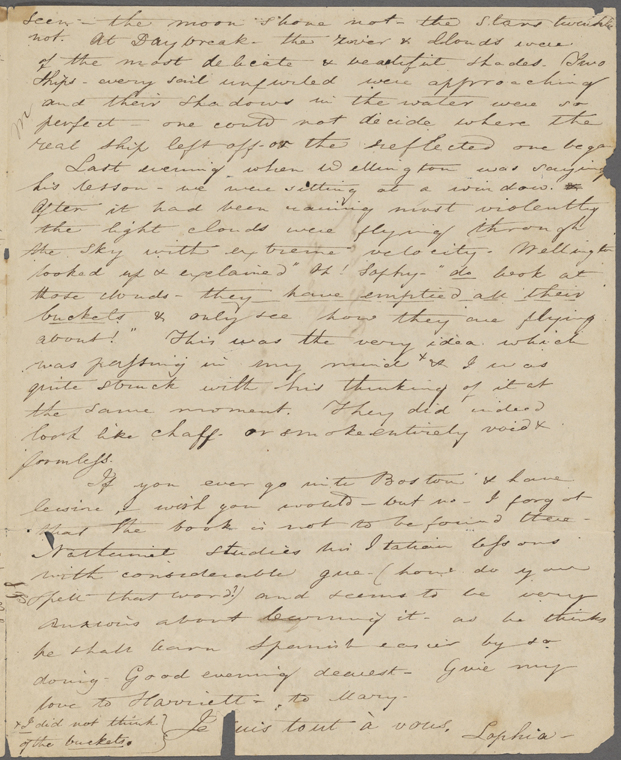 seen – the moon shone not – the stars twinkle
not. At Daybreak – the river & clouds were
of the most delicate & beautiful shades. Two
ships – every sail unfurled were approaching
and their shadows in the water were so
perfect – one could not decide where the
real ship left off or the reflected one began
Last evening – when Wellington was saying
his lesson – we were sitting at a window.
After it had been raining most violently
the light clouds were flying through
the sky with extreme velocity – Wellington
looked up & exclaimed "Oh! Sophy – do look at
those clouds – they have emptied all their
buckets & only see how they are flying
about!" This was the very idea which
was passing in my mind x & I was
quite struck with his thinking of it at
the same moment. They did indeed
look like chaff or smoke entirely void &
formless.
If you ever go into Boston & have
leisure I wish you would – but no – I forgot
that the book is not to be found there –
Nathaniel studies his Italian lessons
with considerable gue – (how do you
spell that word?) and seems to be very
anxious about learning it – as he thinks
he shall learn Spanish easier by so
doing – Good evening dearest – Give my
love to Harriett – to Mary –
x I did not think
of the buckets.
Je suis tout à vous. Sophia –